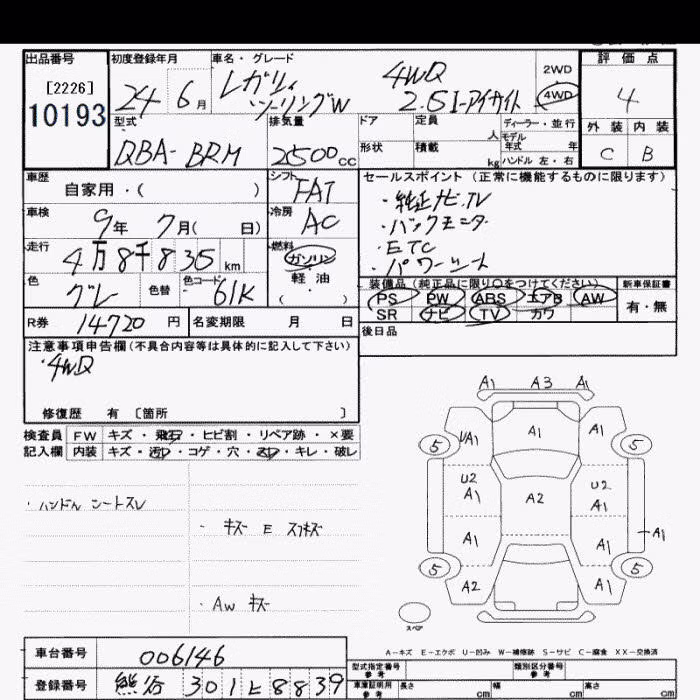 出品番号
[2226]
10193
初度登録年月
24 6月
車名・グレード
レガシィ 4WD
ツーリングW 2.5i-アイサイト
2WD
4WD
評価点
4
外装 内装
C B
型式
DBA-BRM
排気量
2500cc
ドア
形状
定員
人
積載
kg
ディーラー・並行
モデル
年式 年
ハンドル 左・右
車歴
自家用・( )
シフト
FAT
車検
9年 7月( 日)
冷房
AC
走行
4万8千835km
燃料
ガソリン
軽油
( ・ )
色
グレ
色替
色コード
61K
R券 14720円
名変期限 月 日
セールスポイント (正常に機能するものに限ります)
・純正ナビ.TV
・バックモニタ
・ETC
・パワーシート
装備品(純正品に限り○をつけてください)
PS PW ABS エアB AW
SR ナビ TV カワ
新車保証書
有・無
後日品
注意事項申告欄(不具合内容等は具体的に記入して下さい)
・4WD
修復歴 有 〔箇所 〕
検査員 FW キズ・飛石・ヒビ割・リペア跡・×要
記入欄 内装 キズ・汚れ・コゲ・穴・スレ・キレ・破レ
・ハンドル シートスレ
・キズ E スリキズ
・AW キズ
A1 A3 A1
5 UA1 A1 A1 5
U2 U2
A1 A2 A1
A1 A1 A1
5 A2 A1 5
スペア
A-キズ E-エクボ U-凹み W-補修跡 S-サビ C-腐食 XX-交換済
車台番号 006146
登録番号 熊谷 301 ヒ 8839
型式指定番号
参考
類別区分番号
参考
車庫証明用
参考
長さ cm
幅 cm
高さ cm